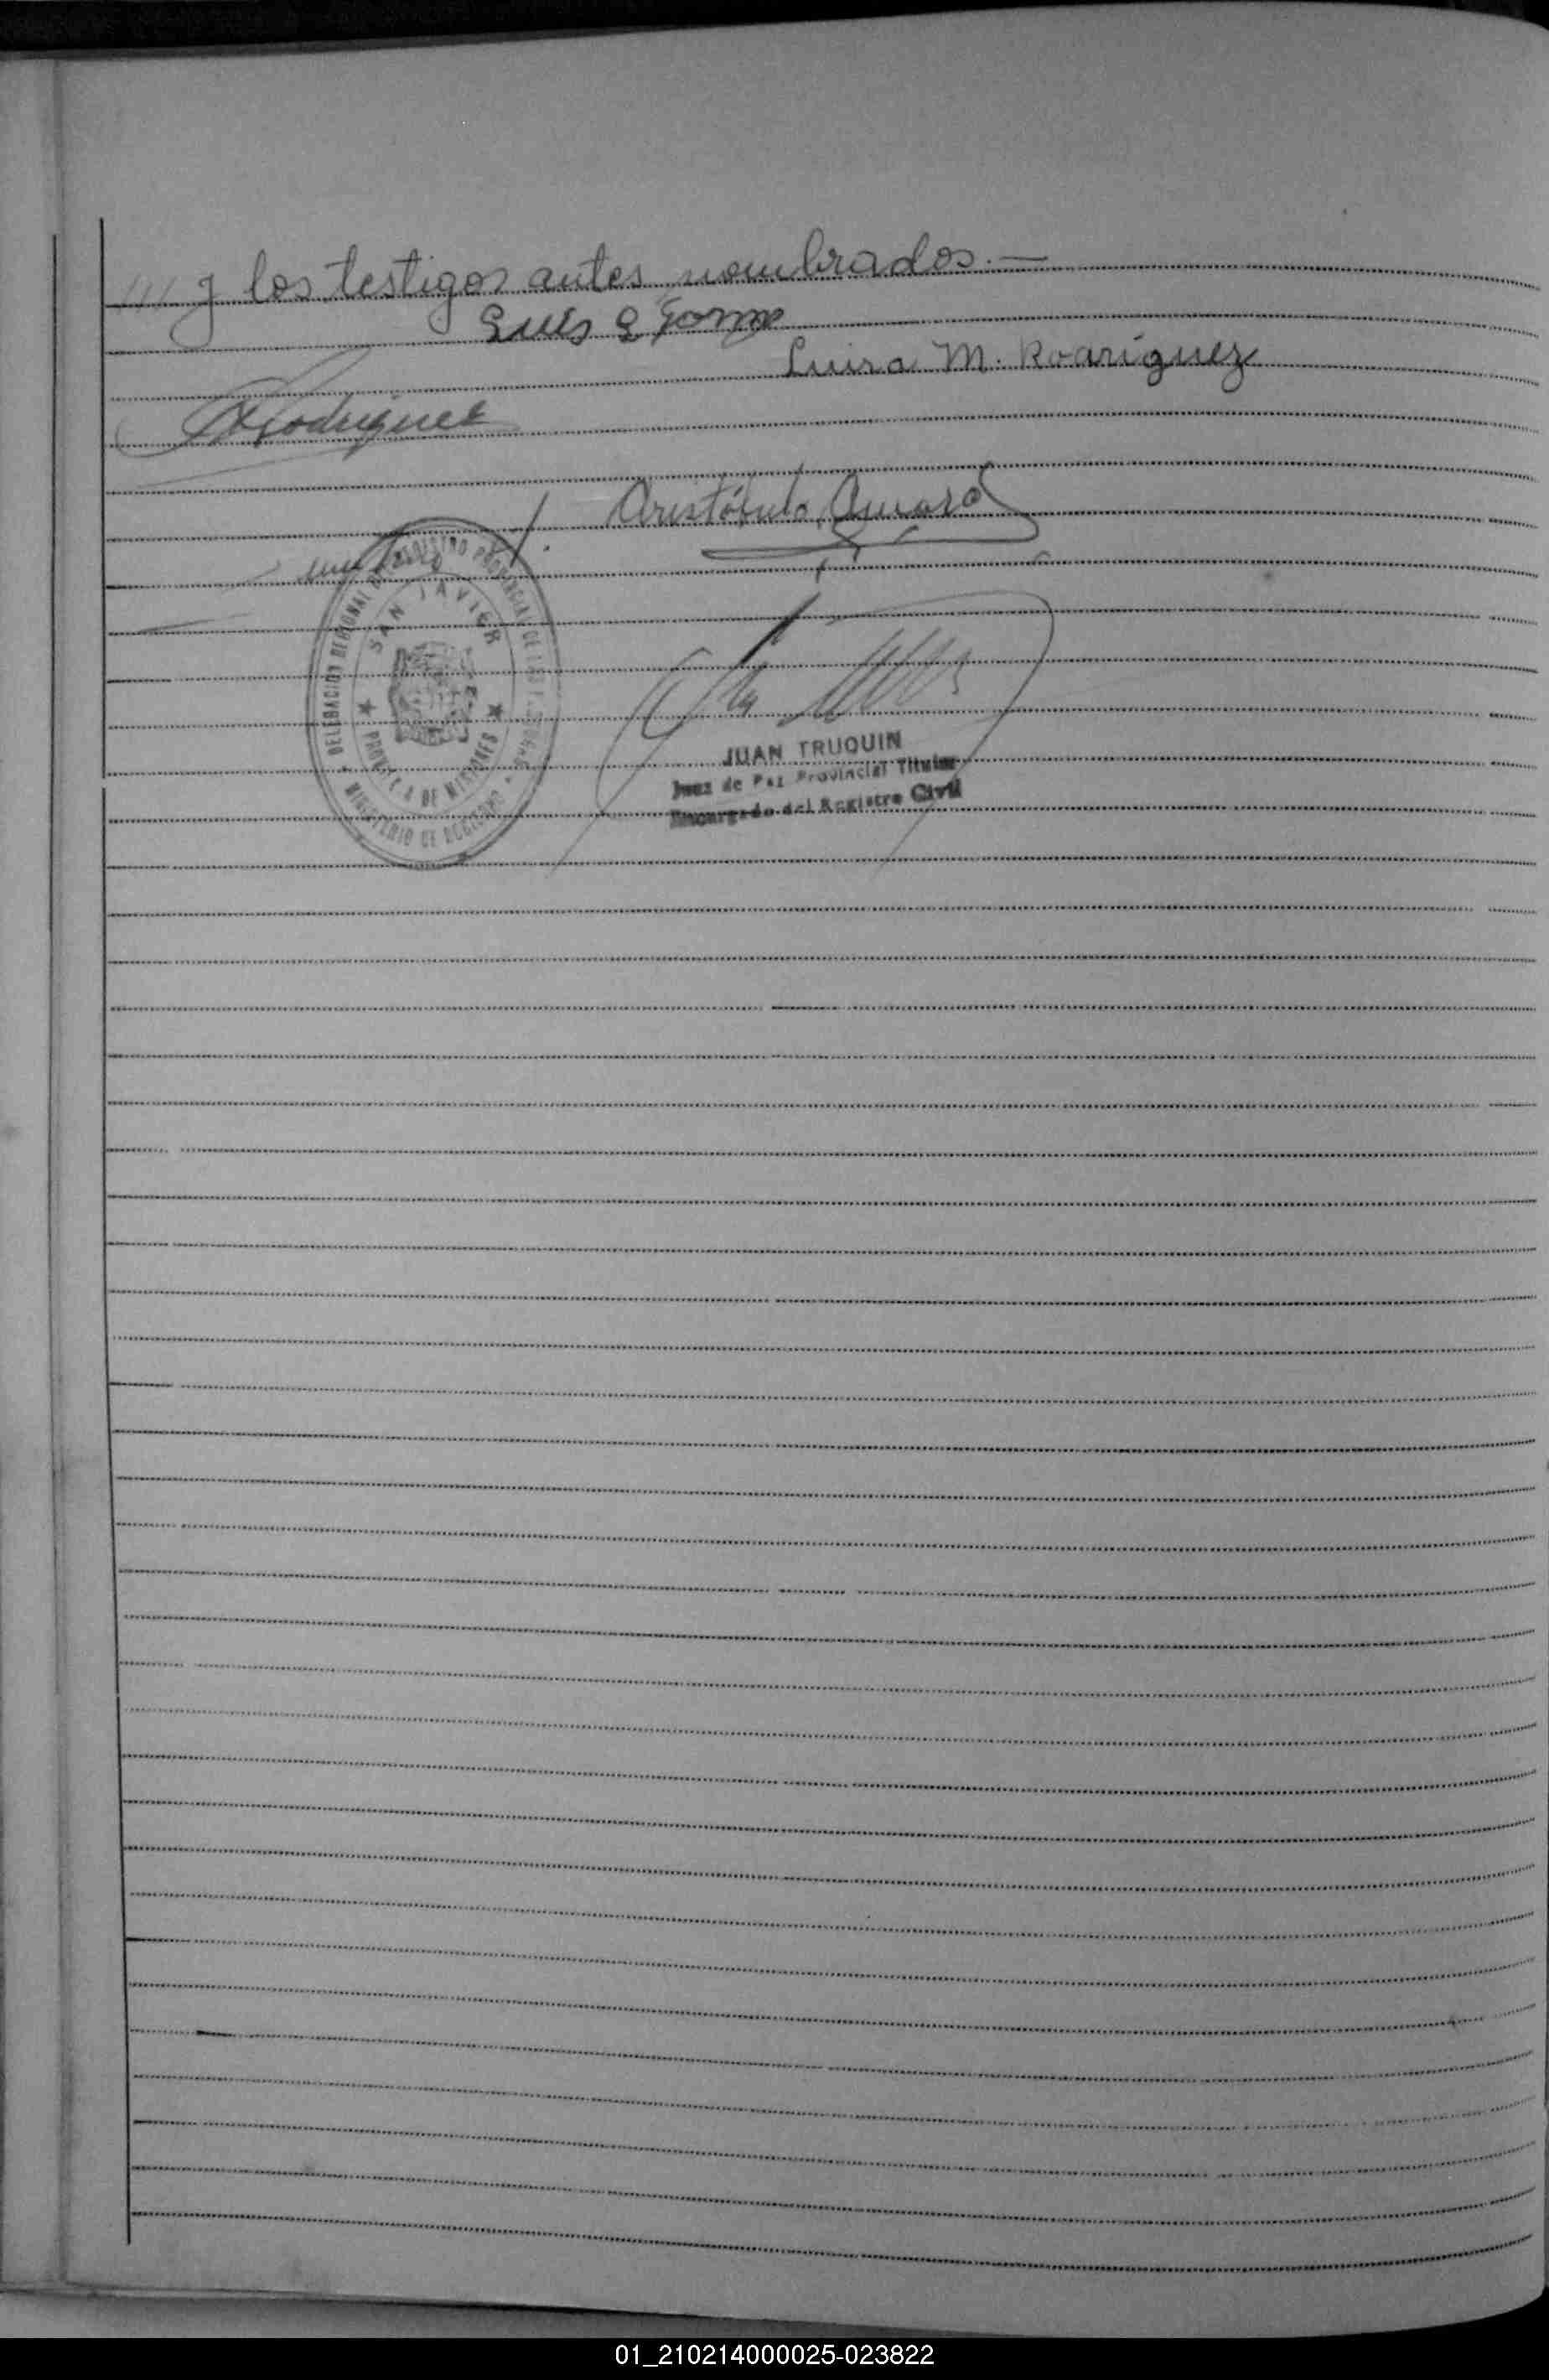 //// y los testigos antes nombrados.—
Luis E Gomez
Luisa M. Rodriguez
Rodriguez
Aristóbulo Amaral
DELEGACION REGIONAL REGISTRO PROVINCIAL DE LAS PERSONAS
SAN JAVIER
PROVINCIA DE MISIONES
MINISTERIO DE GOBIERNO
JUAN TRUQUIN
Juez de Paz Provincial Titular
Encargado del Registro Civil
01_210214000025-023822